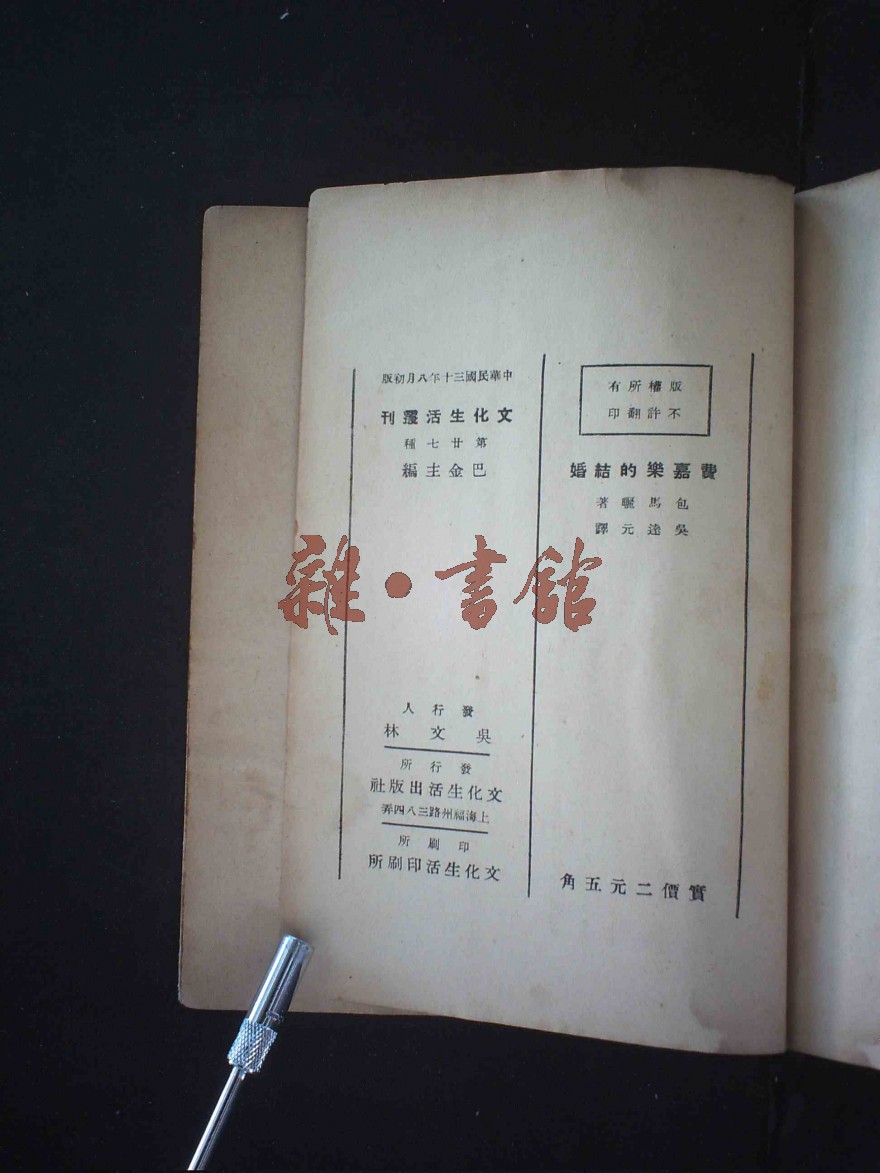 版權所有
不許翻印
費嘉樂的結婚
包馬曬著
吳達元譯
實價二元五角
中華民國三十年八月初版
文化生活叢刊
第廿七種
巴金主編
發行人
吳文林
發行所
文化生活出版社
上海福州路三八四弄
印刷所
文化生活印刷所
雜·書館